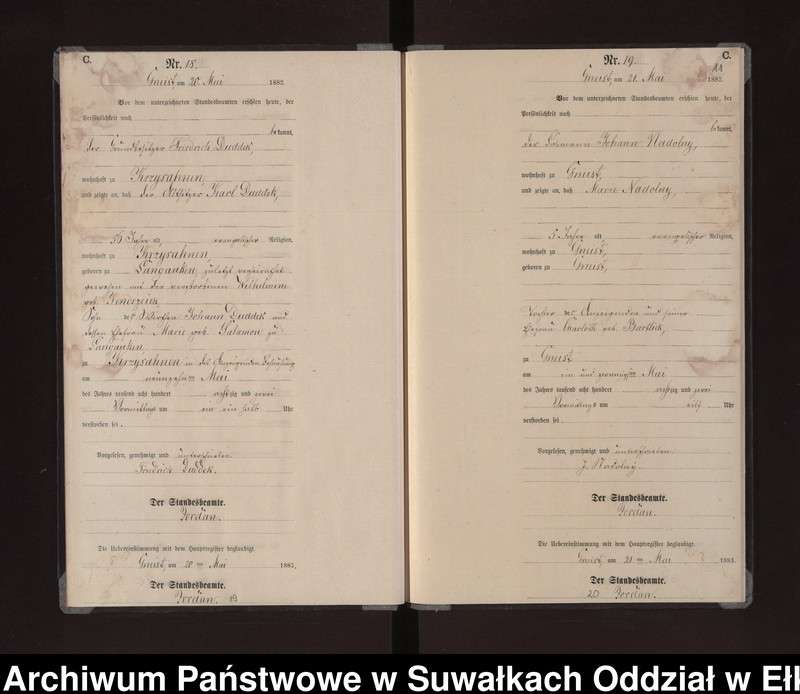 C.
Nr. 18.
Gneist, am 20. Mai 1882.
Vor dem unterzeichneten Standesbeamten erschien heute, der
Persönlichkeit nach
bekannt,
der Grundbesitzer Friedrich Duddek,
wohnhaft zu Krzysahnen,
und zeigte an, daß der Altsitzer Karl Duddek,
56 Jahre alt, evangelischer Religion,
wohnhaft zu Krzysahnen,
geboren zu Langanken, zuletzt verheirathet
gewesen mit der verstorbenen Wilhelmine
geb.
Sohn des Wirthen Johann Duddek und
dessen Ehefrau Marie geb. Salamon zu
Langanken,
zu Krzysahnen in des Anzeigenden Behausung
am neunzehnten Mai
des Jahres tausend acht hundert achtzig und zwei
Vormittags um ein ein halb Uhr
verstorben sei.
Vorgelesen, genehmigt und unterschrieben.
Friedrich Duddek.
Der Standesbeamte.
Jordan.
Die Uebereinstimmung mit dem Hauptregister beglaubigt.
Gneist, am 20ten Mai 1882.
Der Standesbeamte.
Jordan. 19
C.
11
Nr. 19.
Gneist, am 21. Mai 1882.
Vor dem unterzeichneten Standesbeamten erschien heute, der
Persönlichkeit nach
bekannt,
der Losmann Johann Nadolny,
wohnhaft zu Gneist,
und zeigte an, daß Marie Nadolny,
5 Jahre alt evangelischer Religion,
wohnhaft zu Gneist,
geboren zu Gneist,
Tochter des Anzeigenden und seiner
Ehefrau Charlotte geb.
zu Gneist
am ein und zwanzigsten Mai
des Jahres tausend acht hundert achtzig und zwei
Vormittags um elf Uhr
verstorben sei.
Vorgelesen, genehmigt und unterschrieben.
J. Nadolny.
Der Standesbeamte.
Jordan.
Die Uebereinstimmung mit dem Hauptregister beglaubigt.
Gneist, am 21ten Mai 1882.
Der Standesbeamte.
20 Jordan.
Archiwum Państwowe w Suwałkach Oddział w Ełk